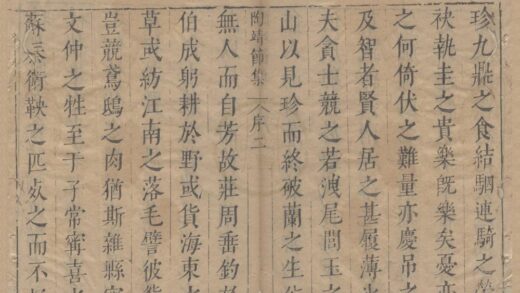 珍九鼎之食結駟連騎之
袂執圭之貴樂既樂矣憂亦
之何倚伏之難量亦慶弔之
及智者賢人居之甚履薄
夫貪士競之若洩尾閭玉之
山以見珍而終破蘭之生
陶靖節集 序 二
無人而自芳故莊周垂釣
伯成躬耕於野或貨海東
草或紡江南之落毛譬彼
豈競鳶鴟之肉猶斯雜縣
文仲之牲至于子常甯喜
蘇秦衛鞅之匹死之而不